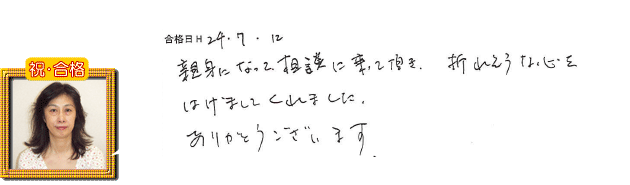 合格日H 24.7.12
祝・合格
親身になって相談に乗って頂き、折れそうな心を
はげましてくれました。
ありがとうございます.